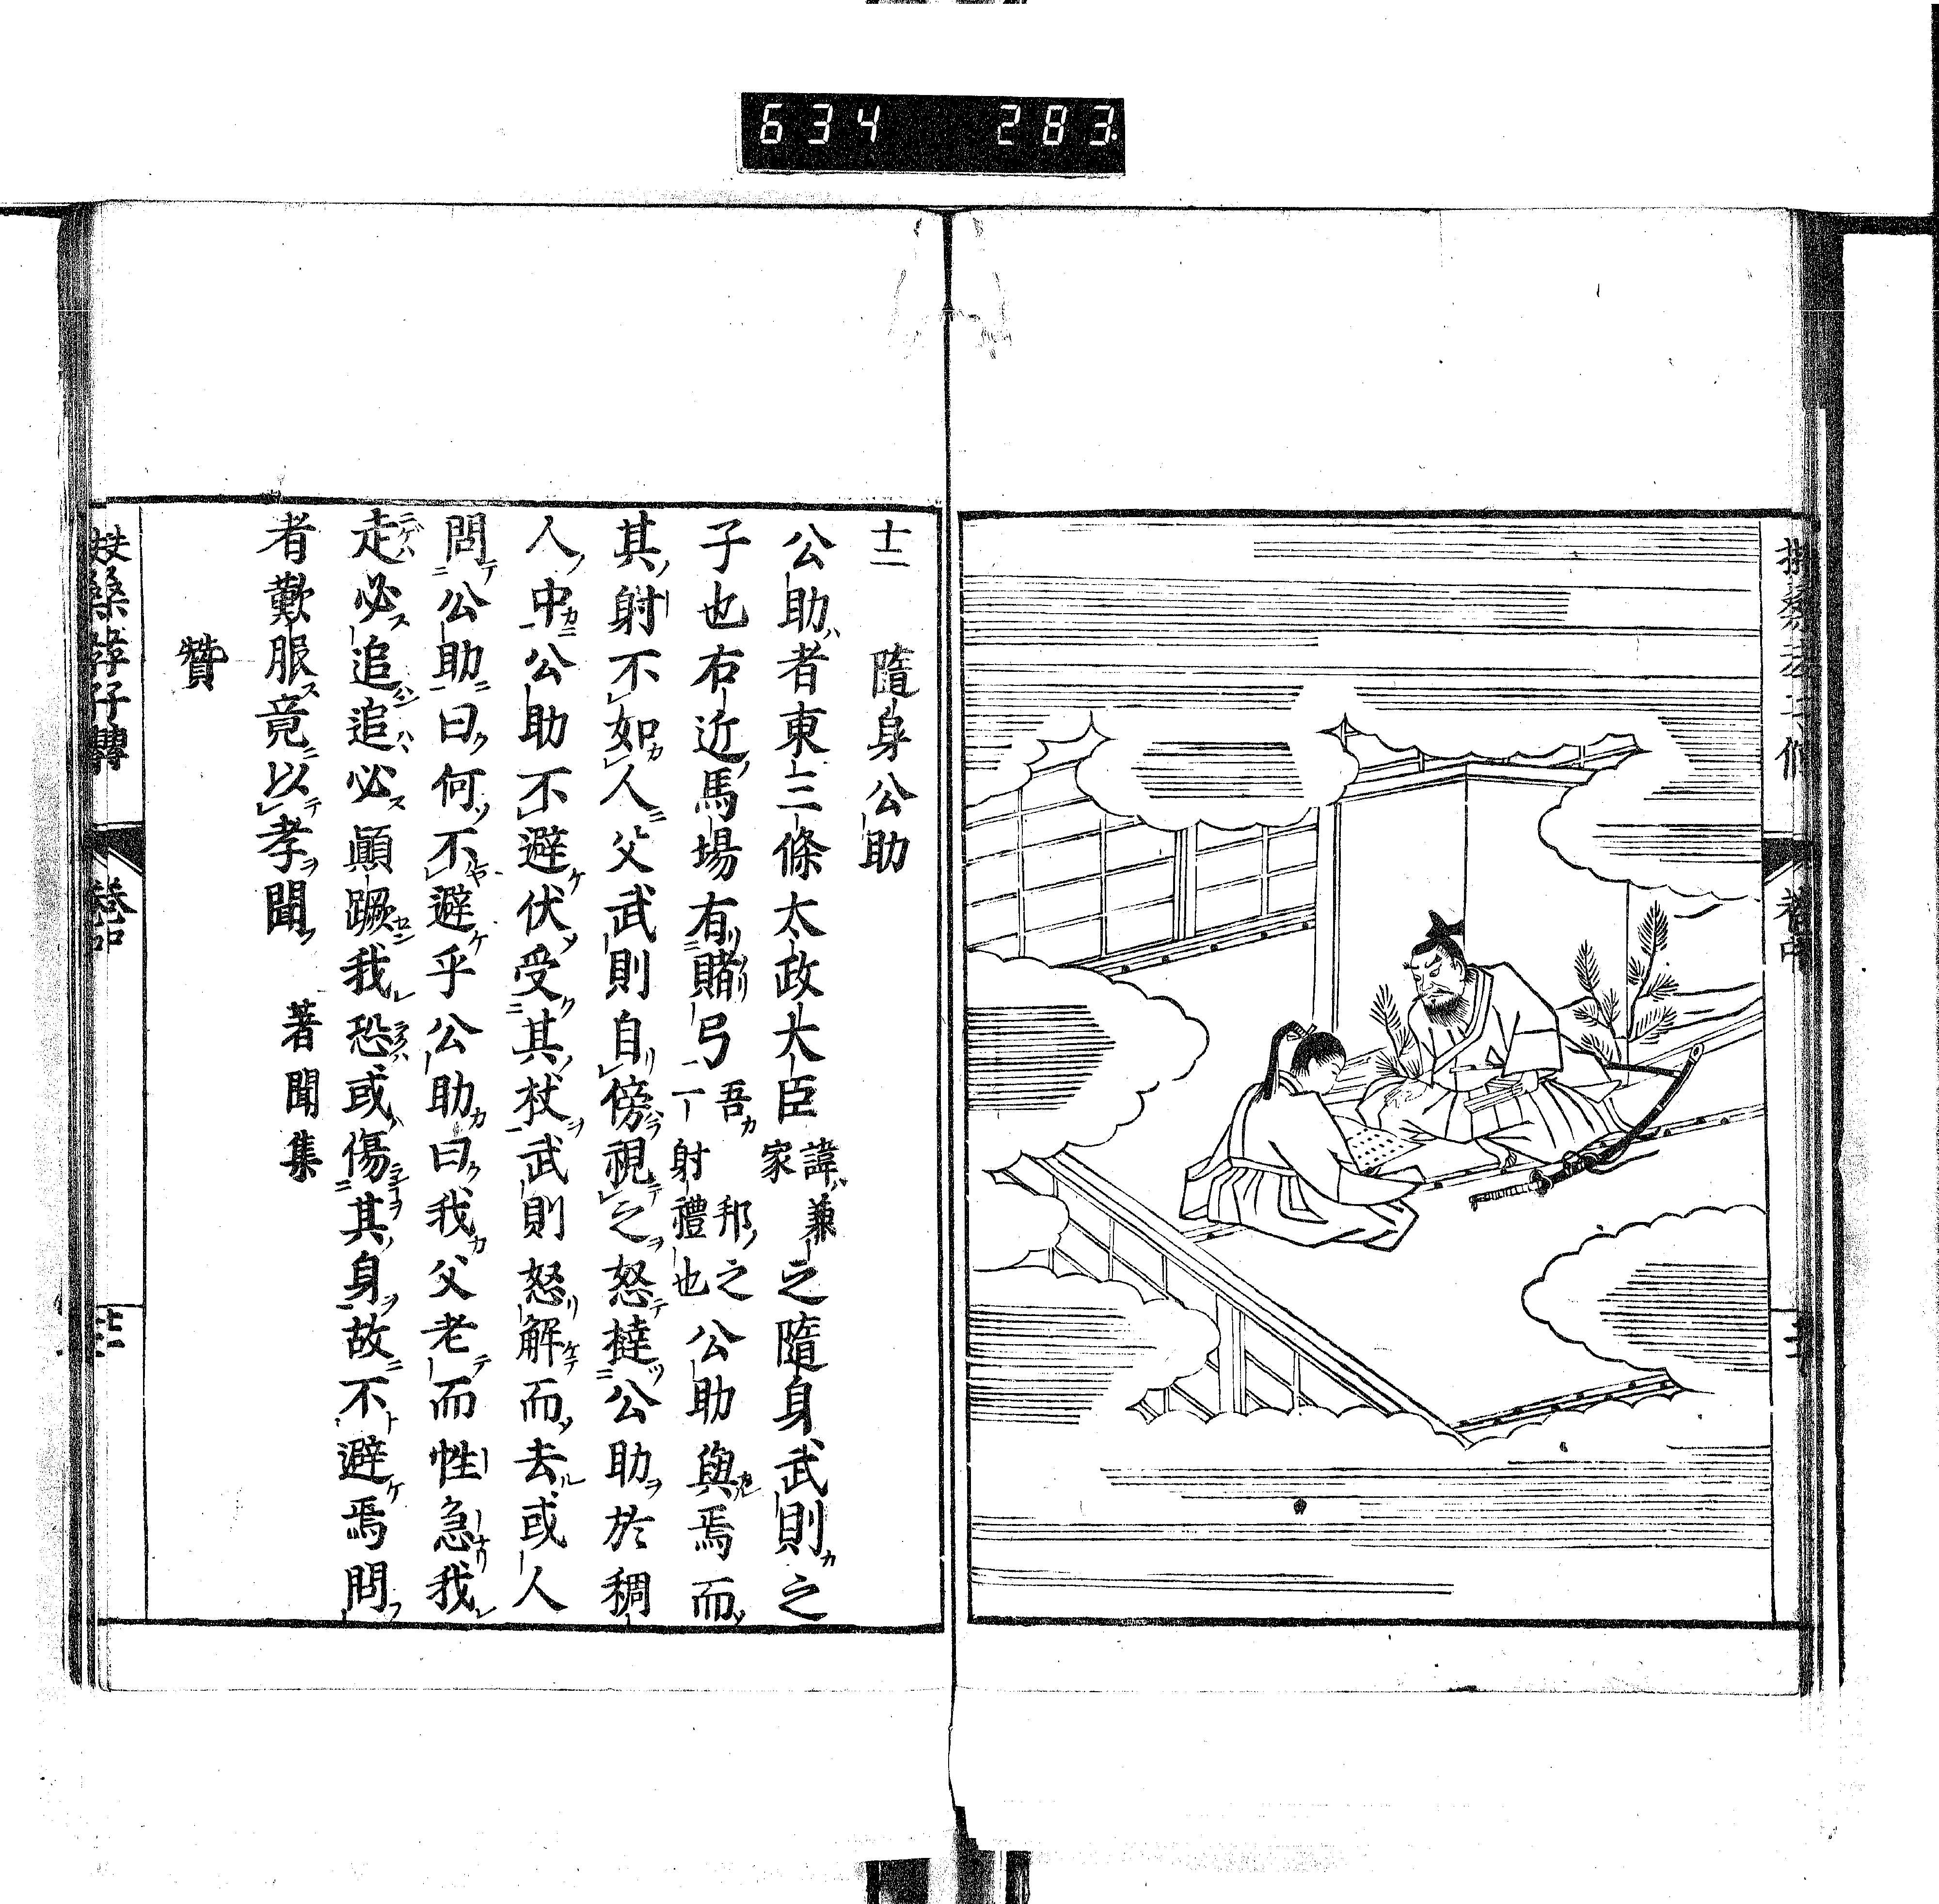 634 283
十二 隨身公助
公助者東三條太政大臣諱兼家之隨身武則之
子也右近馬場有賭弓吾邦之一丁射禮也公助與焉而
其射不如人父武則自傍視之怒撻公助於稠
人中公助不避伏受其杖武則怒解而去或人
問公助曰何不避乎公助曰我父老而性急我
走必追追必顚蹶我恐或傷其身故不避焉問
者歎服竟以孝聞 著聞集
贊
扶桑孝子傳 卷中